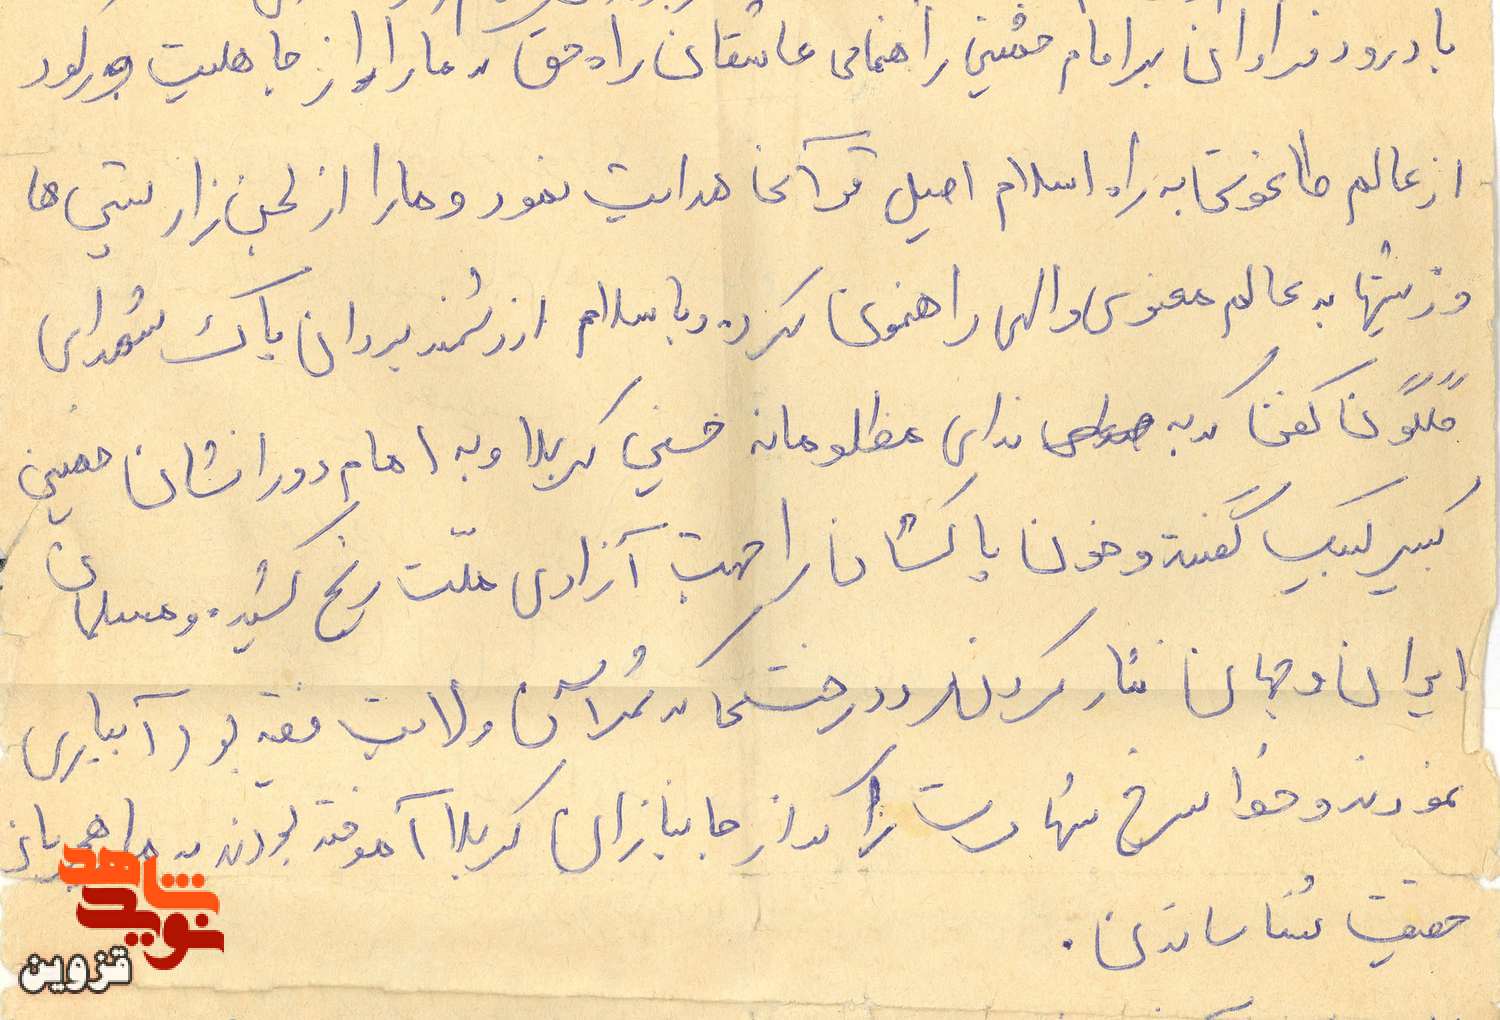 با درود فراوان بر امام خمینی راهنمای عاشقان راه حق که ما را از جاهلیت و رکود
از عالم طاغوتی به راه اسلام اصیل قرآنی هدایت نمود و ما را از لجن زار پستی ها
و زشتیها به عالم معنوی و الهی راهنمون کرد و با سلام ارزشمند بر روان پاک شهدای
گلگون کفن که به ندای مظلومانه حسین کربلا و به امام دورانشان خمینی
کبیر لبیک گفته و خون پاکشان را جهت آزادی ملّت رنج کشیده و مسلمان
ایران و جهان نثار کردند و درختی که ثمر آن ولایت فقیه بود آبیاری
نمودند و خط سرخ شهادت را که از جانبازان کربلا آموخته بودند به ما
حقیقت شناساندن.
نوید شاهد
قزوین